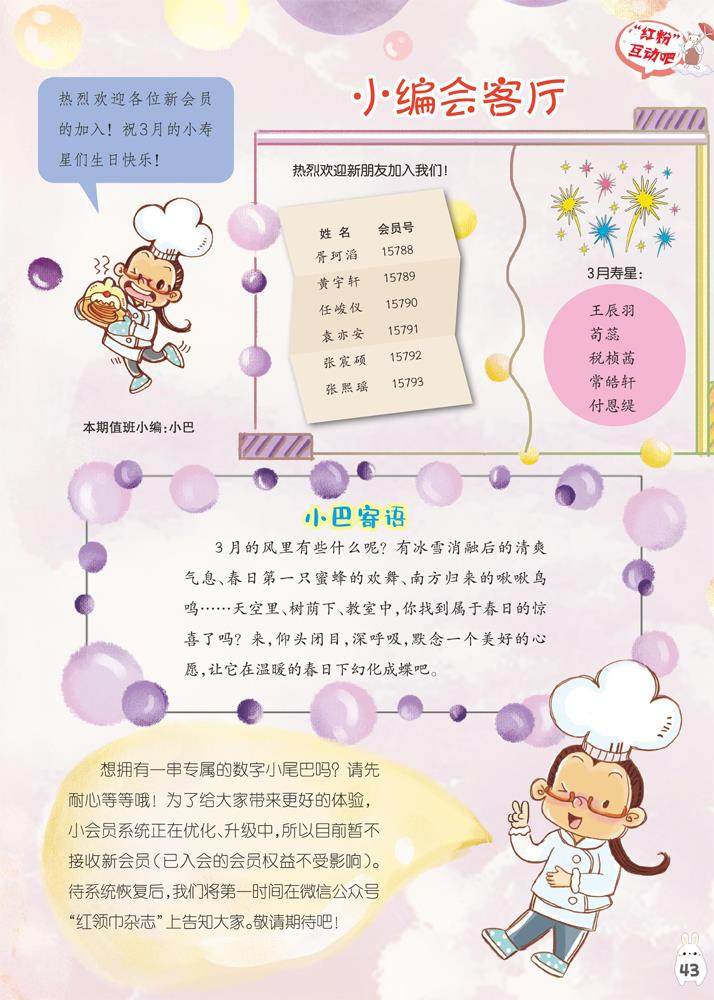 “红粉”
互动吧
小编会客厅
热烈欢迎各位新会员
的加入！祝3月的小寿
星们生日快乐！
热烈欢迎新朋友加入我们！
姓 名 会员号
胥珂滔 15788
黄宇轩 15789
任峻仪 15790
袁亦安 15791
张宸硕 15792
张熙瑶 15793
3月寿星：
王辰羽
苟蕊
税桢茜
常皓轩
付恩缇
本期值班小编：小巴
小巴寄语
3月的风里有些什么呢？有冰雪消融后的清爽
气息、春日第一只蜜蜂的欢舞、南方归来的啾啾鸟
鸣……天空里、树荫下、教室中，你找到属于春日的惊
喜了吗？来，仰头闭目，深呼吸，默念一个美好的心
愿，让它在温暖的春日下幻化成蝶吧。
想拥有一串专属的数字小尾巴吗？请先
耐心等等哦！为了给大家带来更好的体验，
小会员系统正在优化、升级中，所以目前暂不
接收新会员（已入会的会员权益不受影响）。
待系统恢复后，我们将第一时间在微信公众号
“红领巾杂志”上告知大家。敬请期待吧！
43